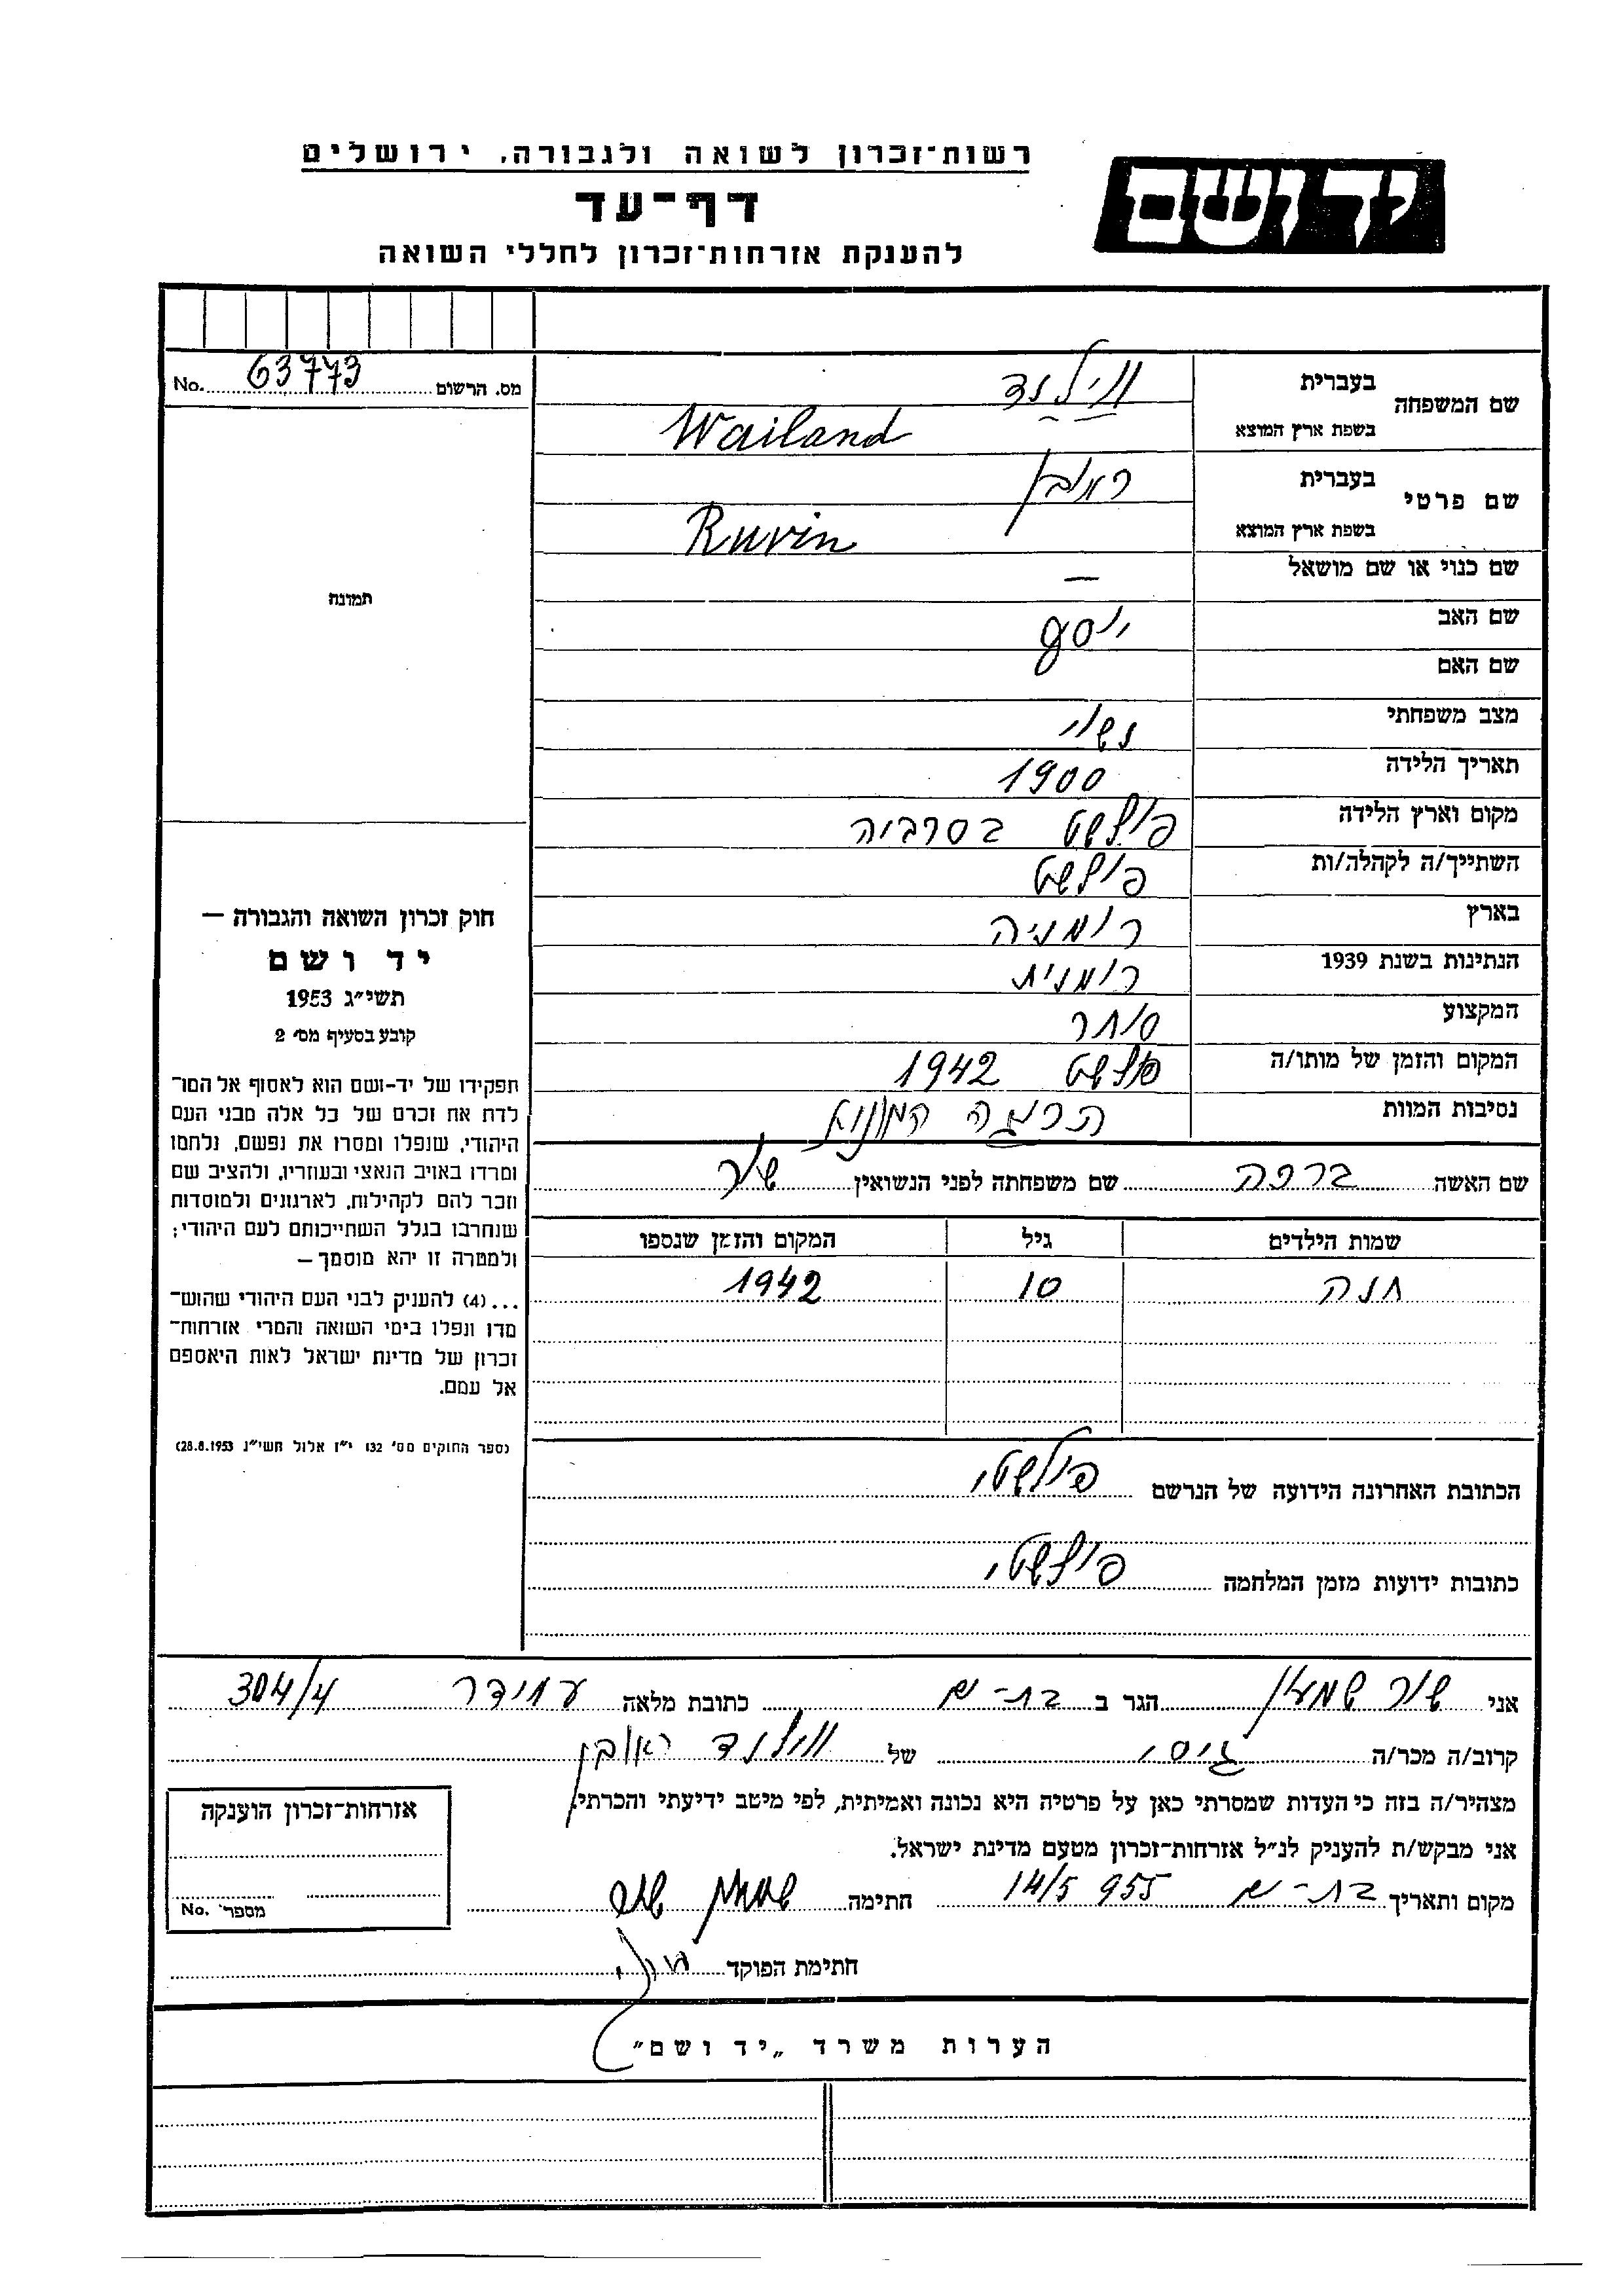 רשות־זכרון לשואה ולגבורה, ירושלים
יד ושם
דף־עד
להענקת אזרחות־זכרון לחללי השואה
מס. הרשום 63773 No.
שם המשפחה בעברית וילנד
בשפת ארץ המוצא Wailand
שם פרטי בעברית ראובן
בשפת ארץ המוצא Ruvin
שם כנוי או שם מושאל —
שם האב יוסף
שם האם
מצב משפחתי נשוי
תאריך הלידה 1900
מקום וארץ הלידה פולשט בסרביה
השתייך/ה לקהלה/ות פולשט
בארץ רומניה
הנתינות בשנת 1939 רומנית
המקצוע סוחר
המקום והזמן של מותו/ה פולשט 1942
נסיבות המוות
שם האשה ברכה שם משפחתה לפני הנשואין שור
שמות הילדים גיל המקום והזמן שנספו
חנה 10 1942
הכתובת האחרונה הידועה של הנרשם פולשטי
כתובות ידועות מזמן המלחמה פולשטי
תמונה
חוק זכרון השואה והגבורה —
יד ושם
תשי״ג 1953
קובע בסעיף מס׳ 2
תפקידו של יד-ושם הוא לאסוף אל המו־
לדת את זכרם של כל אלה מבני העם
היהודי, שנפלו ומסרו את נפשם, נלחמו
ומרדו באויב הנאצי ובעוזריו, ולהציב שם
וזכר להם לקהילות, לארגונים ולמוסדות
שנחרבו בגלל השתייכותם לעם היהודי;
ולמטרה זו יהא מוסמך —
...(4) להענין לבני העם היהודי שהוש־
מדו ונפלו בימי השואה והמרי אזרחות־
זכרון של מדינת ישראל לאות היאספם
אל עמם.
(ספר החוקים מס׳ 132 י״ז אלול תשי״ג 28.8.1953)
אני שור שמעון הגר ב בת-ים כתובת מלאה עמידר 304/4
קרוב/ה מכר/ה גיסו של וילנד ראובן
מצהיר/ה בזה כי העדות שמסרתי כאן על פרטיה היא נכונה ואמיתית, לפי מיטב ידיעתי והכרתי.
אני מבקש/ת להעניק לנ״ל אזרחות־זכרון מטעם מדינת ישראל.
מקום ותאריך בת-ים 14/5 955 חתימה
חתימת הפוקד
אזרחות־זכרון הוענקה
מספר No.
הערות משרד „יד ושם״